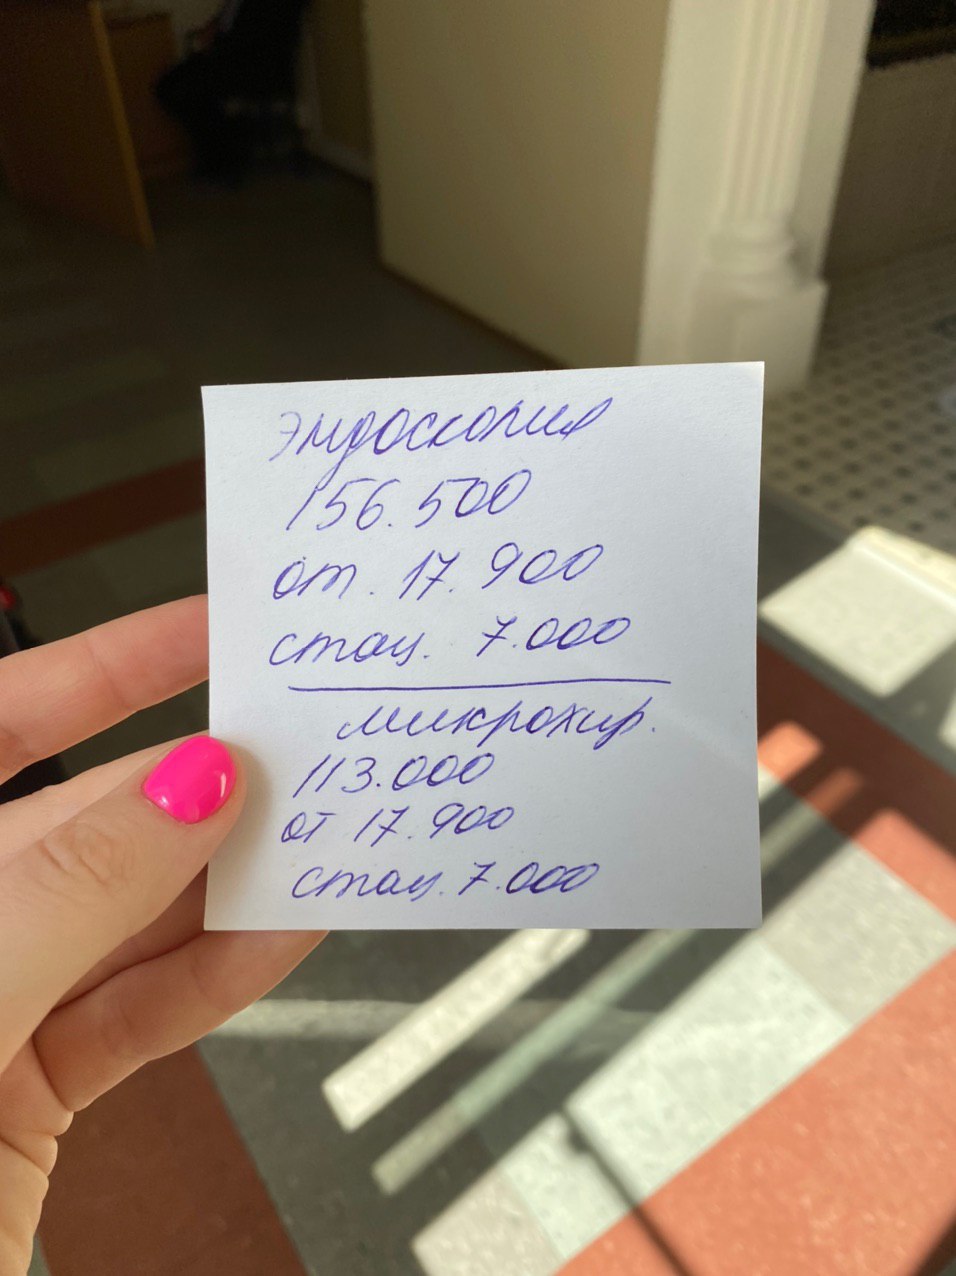 эндоскопия
156.500
от. 17.900
стац. 7.000
микрохир.
113.000
от 17.900
стац. 7.000